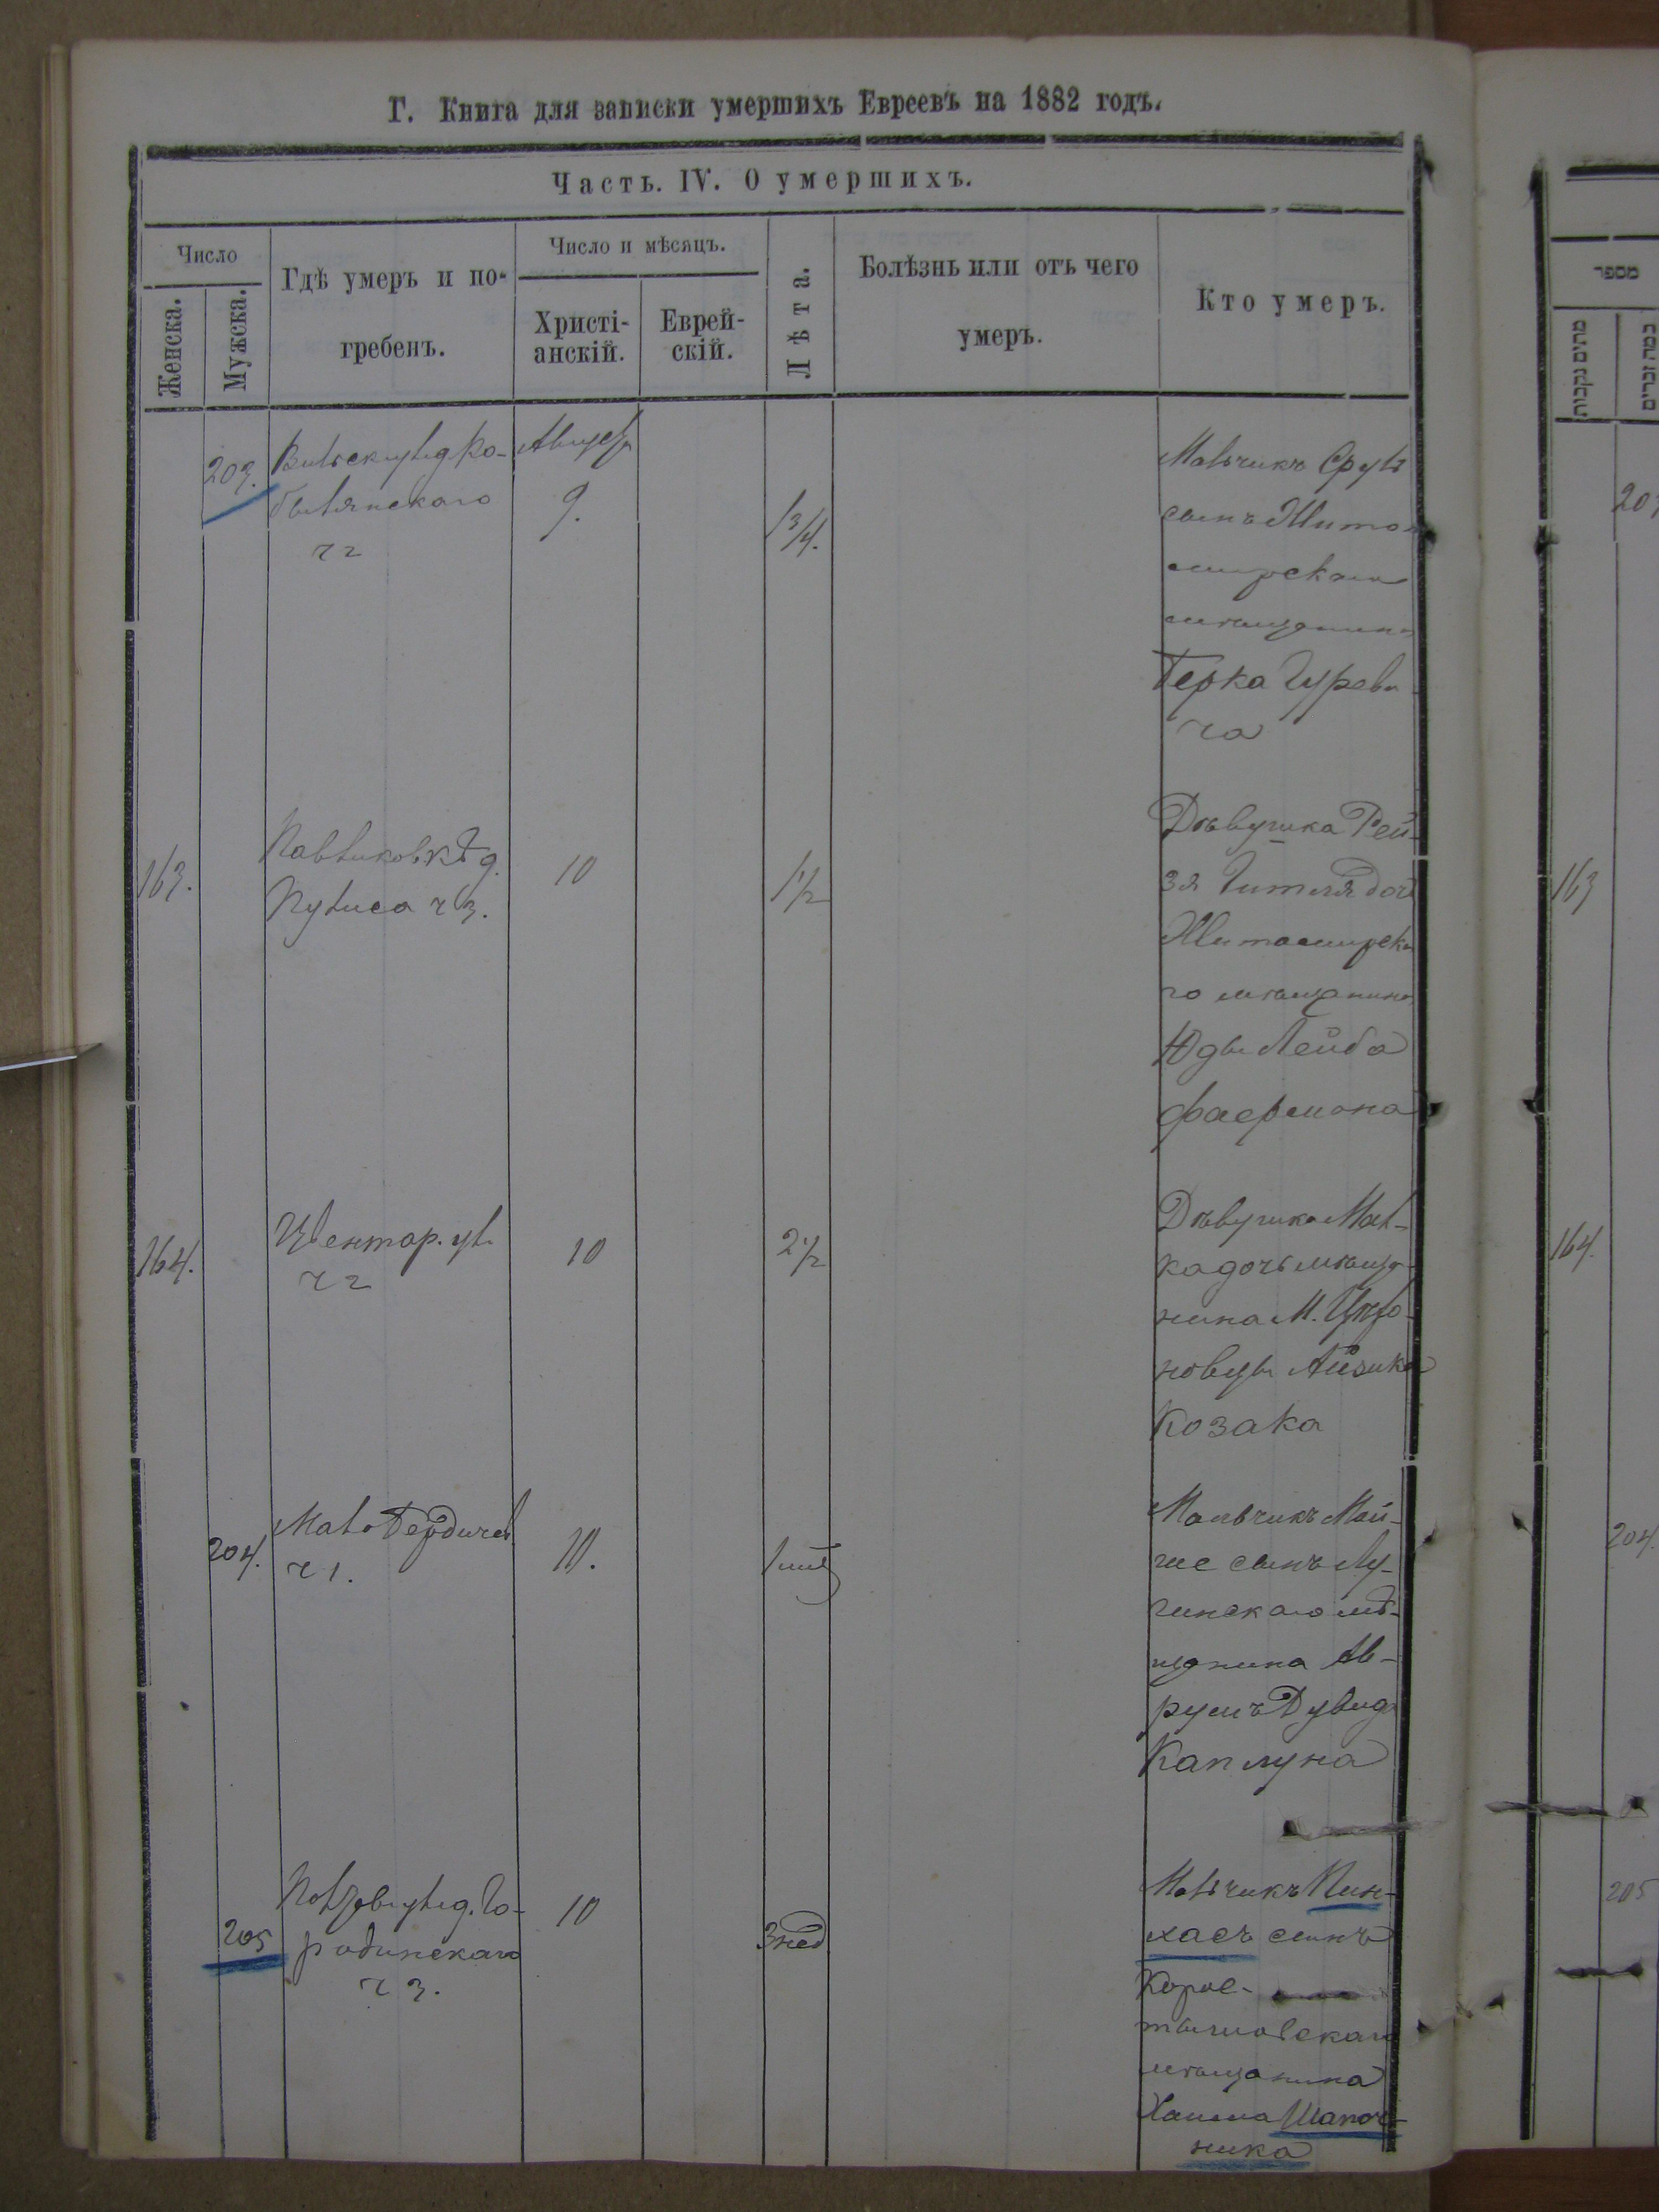 Г. Книга для записки умершихъ Евреевъ на 1882 годъ.
Часть. IV. О умершихъ.
Число
Женска.
Мужска.
Гдѣ умеръ и по-
гребенъ.
Число и мѣсяцъ.
Христі-
анскій.
Еврей-
скій.
Лѣта.
Болѣзнь или отъ чего
умеръ.
Кто умеръ.
203.
Вильск ул д Ко-
былянскаго
ч 2
Августа
9.
1 3/4.
Мальчикъ Сруль
сынъ Жито-
мирскаго
мѣщанина
Берка Гуреви-
ча
163.
д.
ч 3.
10
1 1/2
Дѣвушка Рей-
зя Гитля дочь
Житомирска
го мѣщанина
Юды Лейба
Фаермана
164.
ул.
ч 2
10
2 1/2
Дѣвушка Мал-
ка дочь мѣща-
нина М.
новцы Айзика
Козака
204.
Мало Бердичев
ч 1.
10.
1
Мальчикъ Мой-
ше сынъ Лу-
гинскаго мѣ-
щанина Ав-
румъ Дувида
Каплуна
205
ул д. Го-
родинскаго
ч 3.
10
3 нед
Мальчикъ Пин-
хасъ сынъ
Корос-
тышовскаго
мѣщанина
Хаима Шапоч-
ника
מספר
מהים נקבות
כמה זכרים
163
164.
204.
205